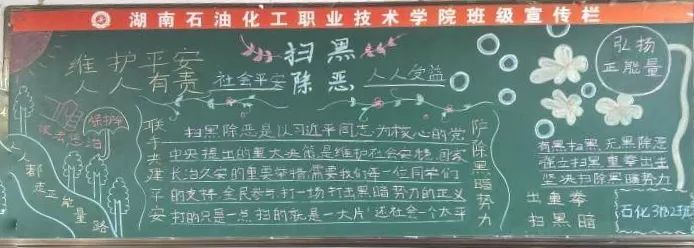 湖南石油化工职业技术学院班级宣传栏
维护平安
人人有责
扫黑
除恶
社会平安
人人受益
弘扬
正能量
保护伞
人人都走正能量路
联手共建平安
扫黑除恶是以习近平同志为核心的党
中央提出的重大决策是维护社会安稳,国家
长治久安的重要举措,需要我们每一位同学们
的支持,全民参与,打一场打击黑暗势力的正义
打的只是一点,扫的就是一大片!还社会一个太平
铲除黑暗势力
有黑扫黑 无黑除恶
强立扫黑 重拳出击
坚决扫除黑暗势力
出重拳
扫黑暗